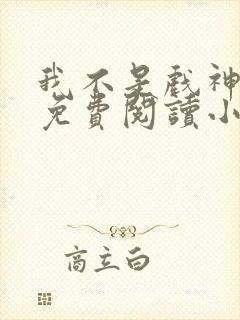 我不是戲神
免費閱讀小
商立白